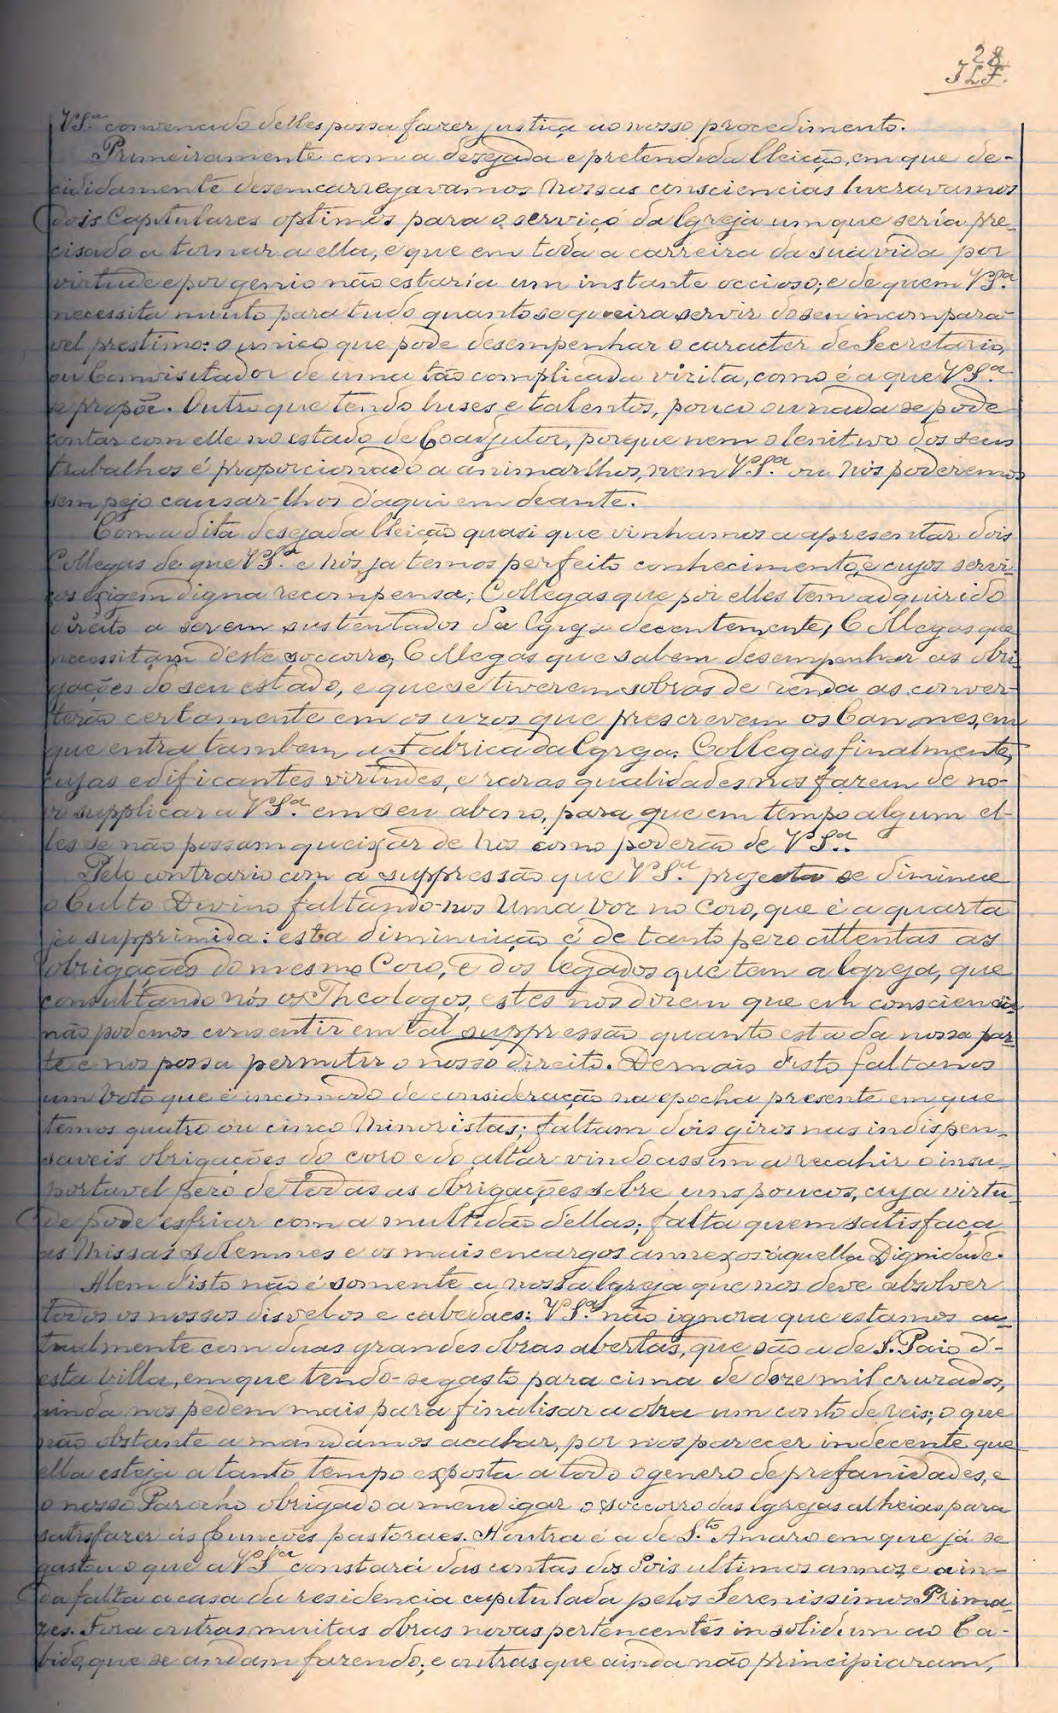 28
J L F.
V S.ª convencido delles possa fazer justiça ao nosso procedimento.
Primeiramente com a desejada e pretendida Eleição, em que de-
cididamente desemcarregavamos nossas consciencias lucravamos
dois Capitulares optimos para o serviço da Igreja um que seria pre-
cisado a tornar a ella, e que em toda a carreira da sua vida por
virtude e por genio não estaria um instante occioso; e de quem V S.ª
necessita muito para tudo quanto se queira servir do seu incompara-
vel prestimo: o unico que pode desempenhar o caracter de Secretario,
ou Convisitador de uma tão complicada vizita, como é a que V S.ª
se propõe. Outro que tendo luses e talentos, pouco ou nada se pode
contar com elle no estado de Coadjutor, porque nem o lenitivo dos seus
trabalhos é proporcionado a animar-lhos, nem V.S.ª ou Nós poderemos
sem pejo causar-lhos d'aqui em deante.
Com a dita desejada Eleição quasi que vinhamos a apresentar dois
Collegas de que V S.ª e Nós ja temos perfeito conhecimento, e cujos servi-
ços exigem digna recompensa; Collegas que por elles tem adquirido
direito a serem sustentados da Igreja decentemente; Collegas que
necessitam d'este soccorro, Collegas que sabem desempenhar as obri-
gações do seu estado, e que se tiverem sobras de renda as conver-
terão certamente em os uzos que prescrevem os Canones, em
que entra tambem a Fabrica da Igreja. Collegas finalmente,
cujas edificantes virtudes, e raras qualidades nos fazem de no-
vo supplicar a V S.ª em seu abono, para que em tempo algum el-
les se não possam queixar de Nos como poderão de V S.ª.
Pelo contrario com a suppressão que V S.ª projecta se diminue
o Culto Divino faltando-nos Uma Voz no Coro, que é a quarta
ja supprimida: esta diminuição é de tanto pezo attentas as
obrigações do mesmo Coro, e dos legados que tem a Igreja, que
consultando nós os Theologos, estes nos dizem que em consciencia
não podemos consentir em tal suppressão quanto está da nossa par-
te e nos possa permittir o nosso direito. Demais d'isto faltanos
um Voto que é incomodo de consideração na epocha presente em que
temos quatro ou cinco Minoristas; faltam dois giros nas indispen-
saveis obrigações do coro e do altar vindo assim a recahir o insu-
portavel pezo de todas as obrigações sobre uns poucos, cuja virtu-
de pode esfriar com a multidão d'ellas; falta quem satisfaça
as Missas solemnes e os mais encargos annexos áquella Dignidade.
Alem d'isto não é somente a nossa Igreja que nos deve absolver
todos os nossos disvelos e cabedaes: V S.ª não ignora que estamos ac-
tualmente com duas grandes obras abertas, que são a de S. Paio d'-
esta Villa, em que tendo-se gasto para cima de doze mil cruzados,
ainda nos pedem mais para finalisar a obra um conto de reis; o que
não obstante a mandamos acabar, por nos parecer indecente, que
ella esteja a tanto tempo exposta a todo o genero de profanidades, e
o nosso Parocho obrigado a mendigar o soccorro das Igrejas alheias para
satisfazer ás funcções pastoraes. A outra é a de S.to Amaro em que já se
gastou o que a V S.ª constará das contas dos dois ultimos annos, e ain-
da falta a casa da residencia capitulada pelos Serenissimos Prima-
zes. Fora outras muitas obras novas pertencentes in solidum ao Ca-
bido, que se andam fazendo; e outras que ainda não principiaram,